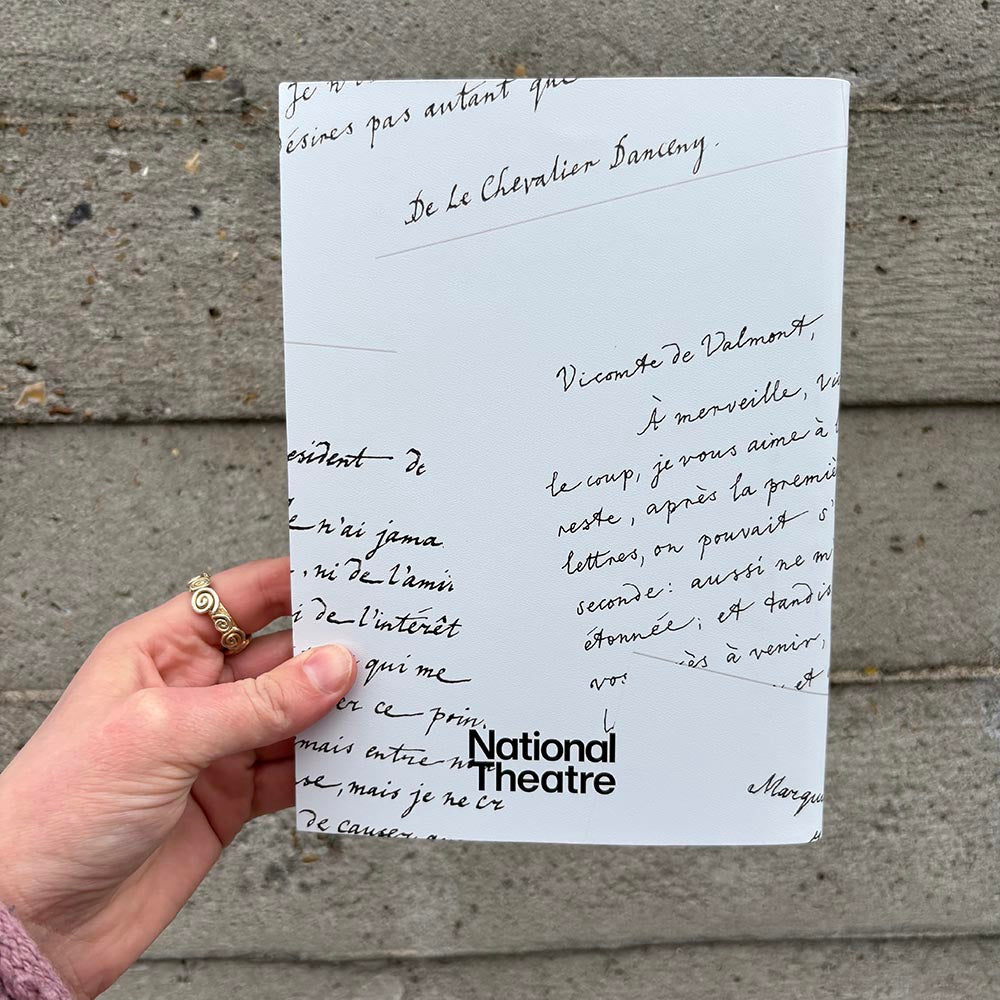 Je n'
ésires pas autant que
De Le Chevalier Danceny.
Vicomte de Valmont,
À merveille, Vi
le coup, je vous aime à
reste, après la premiè
lettres, on pouvait s'
seconde: aussi ne m
étonnée; et tandis
ès à venir,
vos
et
esident de
n'ai jama
, ni de l'ami
i de l'intérêt
qui me
er ce poin
mais entre
se, mais je ne cr
de causer
National
Theatre
Marqu